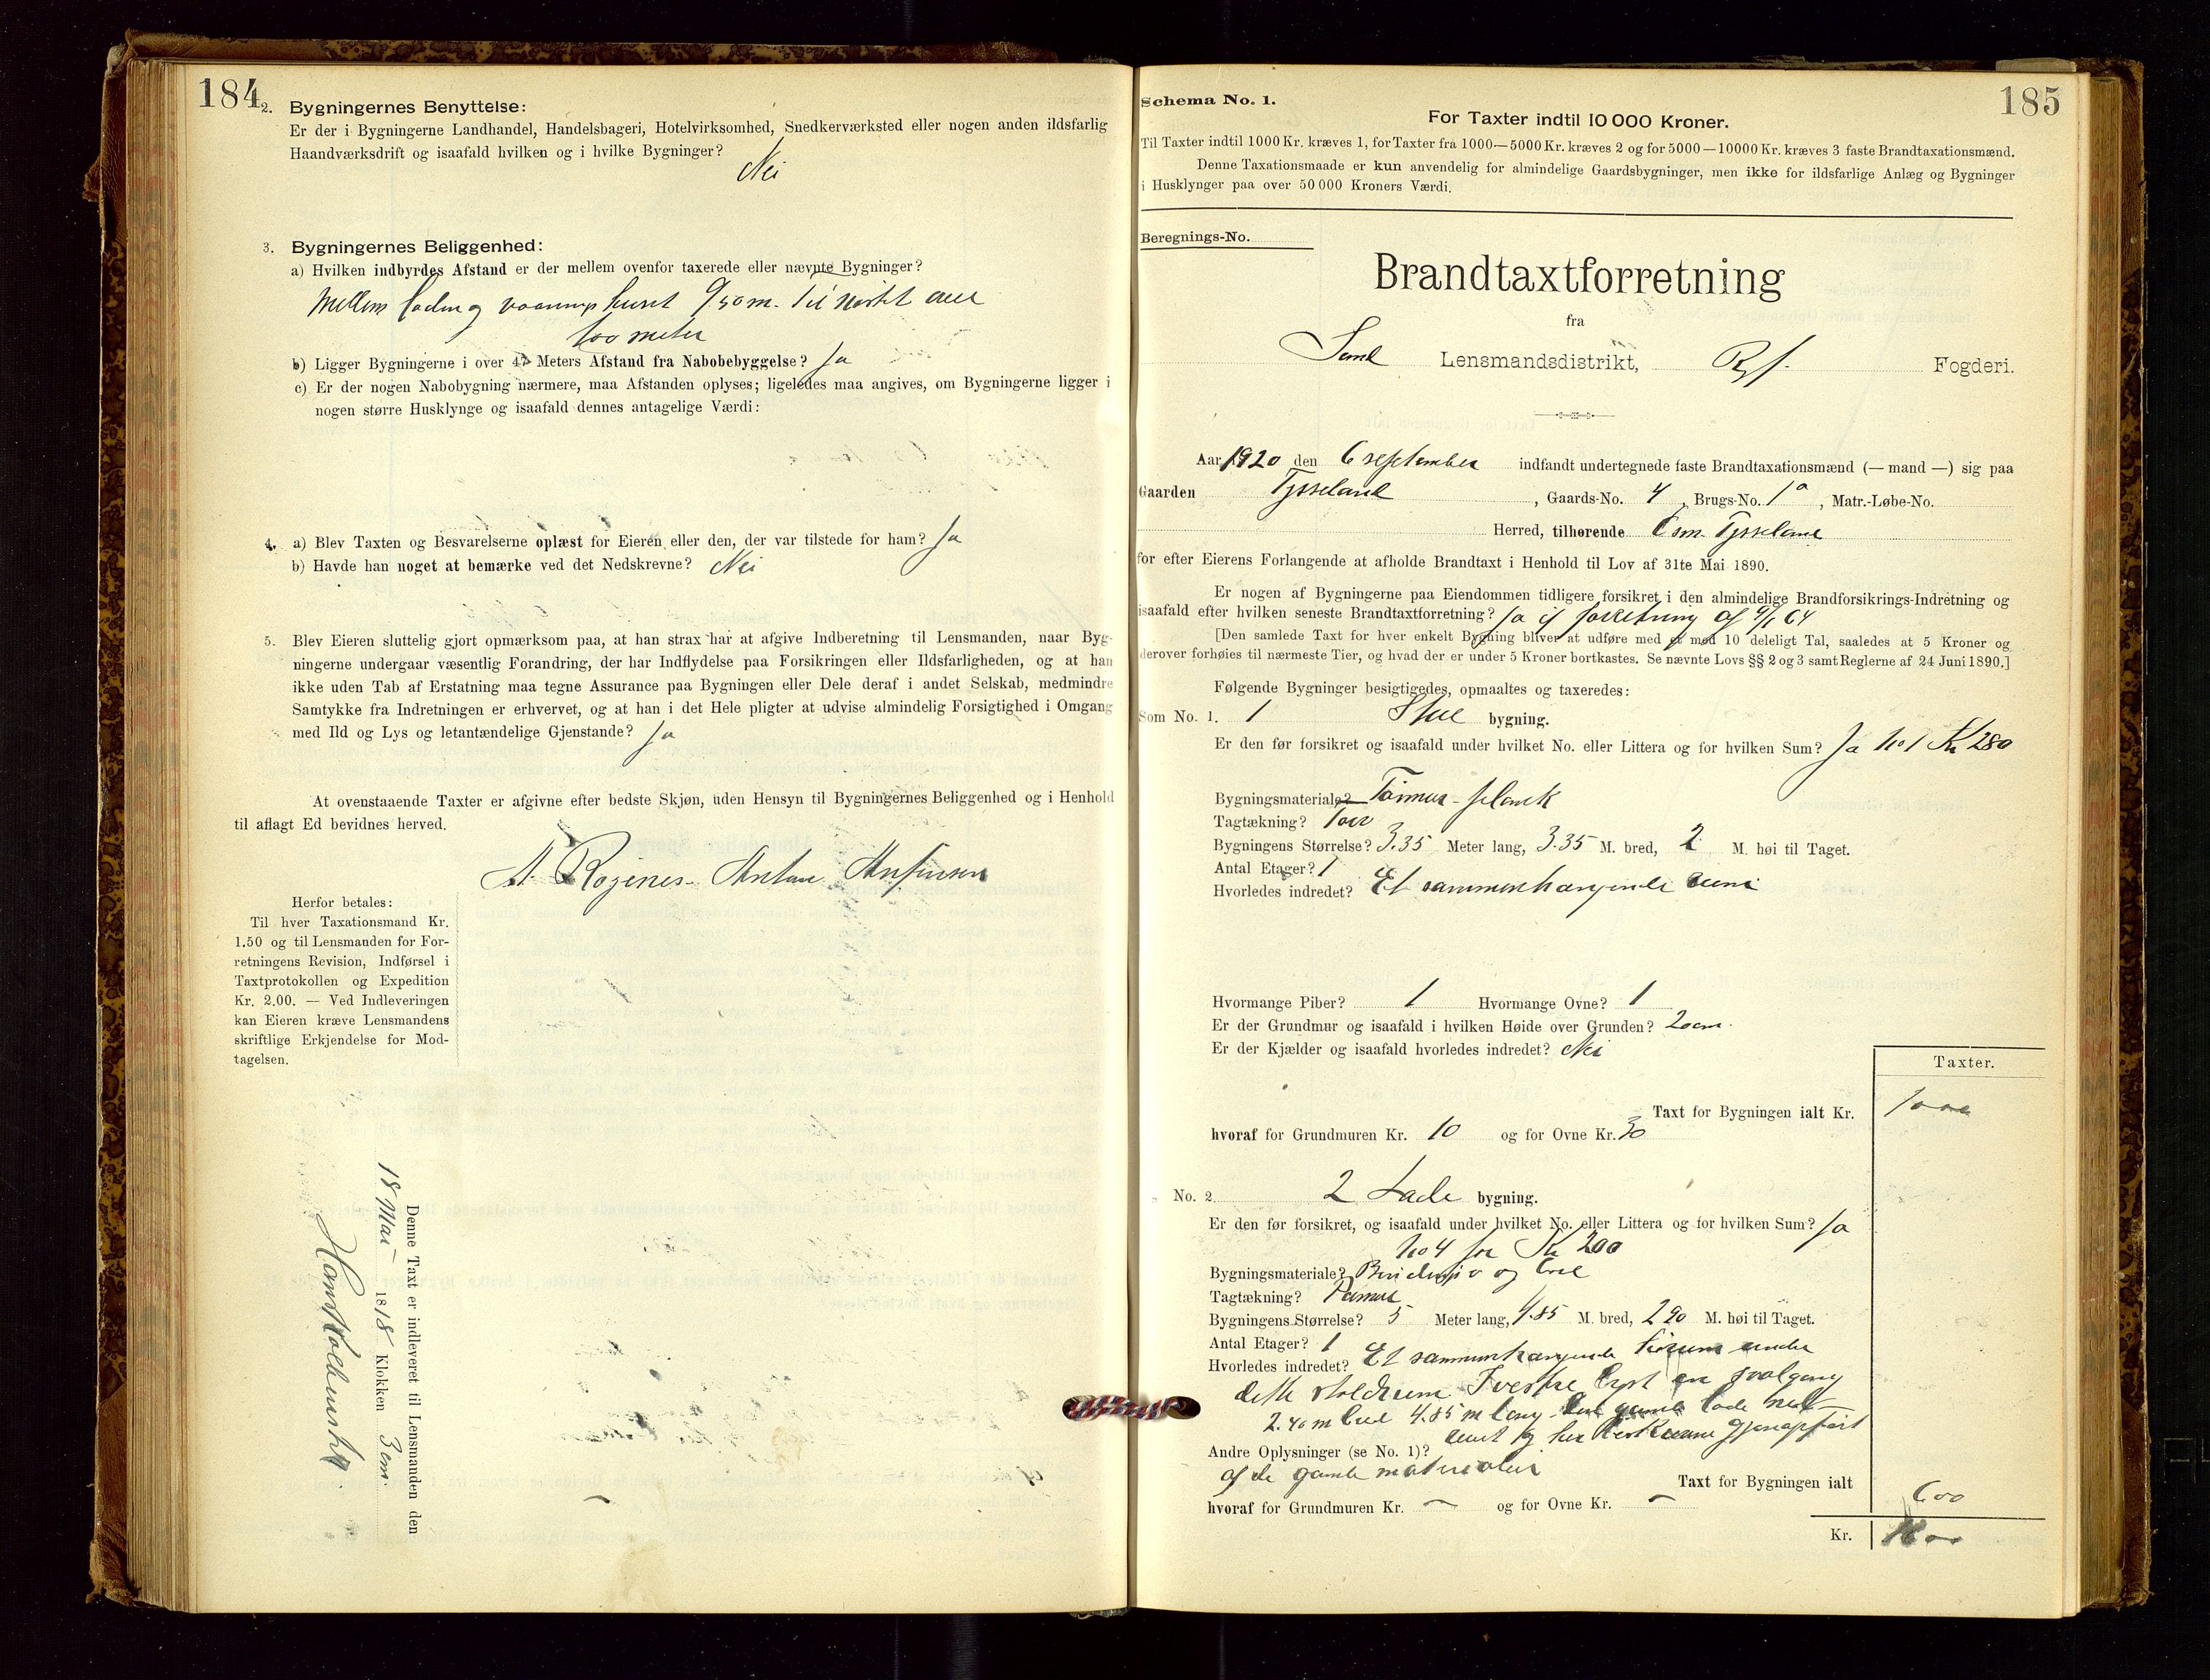 184
2. Bygningernes Benyttelse:
Er der i Bygningerne Landhandel, Handelsbageri, Hotelvirksomhed, Snedkerværksted eller nogen anden ildsfarlig
Haandværksdrift og isaafald hvilken og i hvilke Bygninger?
Nei
3. Bygningernes Beliggenhed:
a) Hvilken indbyrdes Afstand er der mellem ovenfor taxerede eller nævnte Bygninger?
Mellem laden og vaaningshuset 9,50 m. Til
100 meter
b) Ligger Bygningerne i over 47 Meters Afstand fra Nabobebyggelse? Ja
c) Er der nogen Nabobygning nærmere, maa Afstanden oplyses; ligeledes maa angives, om Bygningerne ligger i
nogen større Husklynge og isaafald dennes antagelige Værdi:
4. a) Blev Taxten og Besvarelserne oplæst for Eieren eller den, der var tilstede for ham? Ja
b) Havde han noget at bemærke ved det Nedskrevne? Nei
5. Blev Eieren sluttelig gjort opmærksom paa, at han strax har at afgive Indberetning til Lensmanden, naar Byg-
ningerne undergaar væsentlig Forandring, der har Indflydelse paa Forsikringen eller Ildsfarligheden, og at han
ikke uden Tab af Erstatning maa tegne Assurance paa Bygningen eller Dele deraf i andet Selskab, medmindre
Samtykke fra Indretningen er erhvervet, og at han i det Hele pligter at udvise almindelig Forsigtighed i Omgang
med Ild og Lys og letantændelige Gjenstande? Ja
At ovenstaaende Taxter er afgivne efter bedste Skjøn, uden Hensyn til Bygningernes Beliggenhed og i Henhold
til aflagt Ed bevidnes herved.
Herfor betales:
Til hver Taxationsmand Kr.
1.50 og til Lensmanden for For-
retningens Revision, Indførsel i
Taxtprotokollen og Expedition
Kr. 2.00. — Ved Indleveringen
kan Eieren kræve Lensmandens
skriftlige Erkjendelse for Mod-
tagelsen.
Denne Taxt er indleveret til Lensmanden den
18 Mai 1818 Klokken 3 em.
185
Schema No. 1.
For Taxter indtil 10 000 Kroner.
Til Taxter indtil 1000 Kr. kræves 1, for Taxter fra 1000—5000 Kr. kræves 2 og for 5000—10000 Kr. kræves 3 faste Brandtaxationsmænd.
Denne Taxationsmaade er kun anvendelig for almindelige Gaardsbygninger, men ikke for ildsfarlige Anlæg og Bygninger
i Husklynger paa over 50 000 Kroners Værdi.
Beregnings-No.
Brandtaxtforretning
fra
Sand Lensmandsdistrikt, Ryf. Fogderi.
Aar 1920 den 6 september indfandt undertegnede faste Brandtaxationsmænd (— mand —) sig paa
Gaarden Tysseland, Gaards-No. 4, Brugs-No. 1a, Matr.-Løbe-No.
Herred, tilhørende Osm. Tysseland
for efter Eierens Forlangende at afholde Brandtaxt i Henhold til Lov af 31te Mai 1890.
Er nogen af Bygningerne paa Eiendommen tidligere forsikret i den almindelige Brandforsikrings-Indretning og
isaafald efter hvilken seneste Brandtaxtforretning? Ja if forretning af
[Den samlede Taxt for hver enkelt Bygning bliver at udføre med et med 10 deleligt Tal, saaledes at 5 Kroner og
derover forhøies til nærmeste Tier, og hvad der er under 5 Kroner bortkastes. Se nævnte Lovs §§ 2 og 3 samt Reglerne af 24 Juni 1890.]
Følgende Bygninger besigtigedes, opmaaltes og taxeredes:
Som No. 1. 1 Stue bygning.
Er den før forsikret og isaafald under hvilket No. eller Littera og for hvilken Sum? Ja No 1 Kr 280
Bygningsmateriale? Tømmer-plank
Tagtækning? Torv
Bygningens Størrelse? 3.35 Meter lang, 3.35 M. bred, 2 M. høi til Taget.
Antal Etager? 1
Hvorledes indredet? Et sammenhængende rum
Hvormange Piber? 1 Hvormange Ovne? 1
Er der Grundmur og isaafald i hvilken Høide over Grunden? 20 cm.
Er der Kjælder og isaafald hvorledes indredet? Nei
Taxter.
Taxt for Bygningen ialt Kr. 1000
hvoraf for Grundmuren Kr. 10 og for Ovne Kr. 30
No. 2 2 Lade bygning.
Er den før forsikret, og isaafald under hvilket No. eller Littera og for hvilken Sum? Ja
No 4 for Kr 200
Bygningsmateriale? Bindingsv og bord
Tagtækning?
Bygningens Størrelse? 5 Meter lang, 4.85 M. bred, 2 90 M. høi til Taget.
Antal Etager? 1
Hvorledes indredet? Et sammenhængende under
dette staldrum. I vestre en svalgang
2.40 m bred 4.85 m lang. Den gamle lade
gjenopført
Andre Oplysninger (se No. 1)?
af de gamle materialer
Taxt for Bygningen ialt 600
hvoraf for Grundmuren Kr. — og for Ovne Kr. —
Kr. 1600